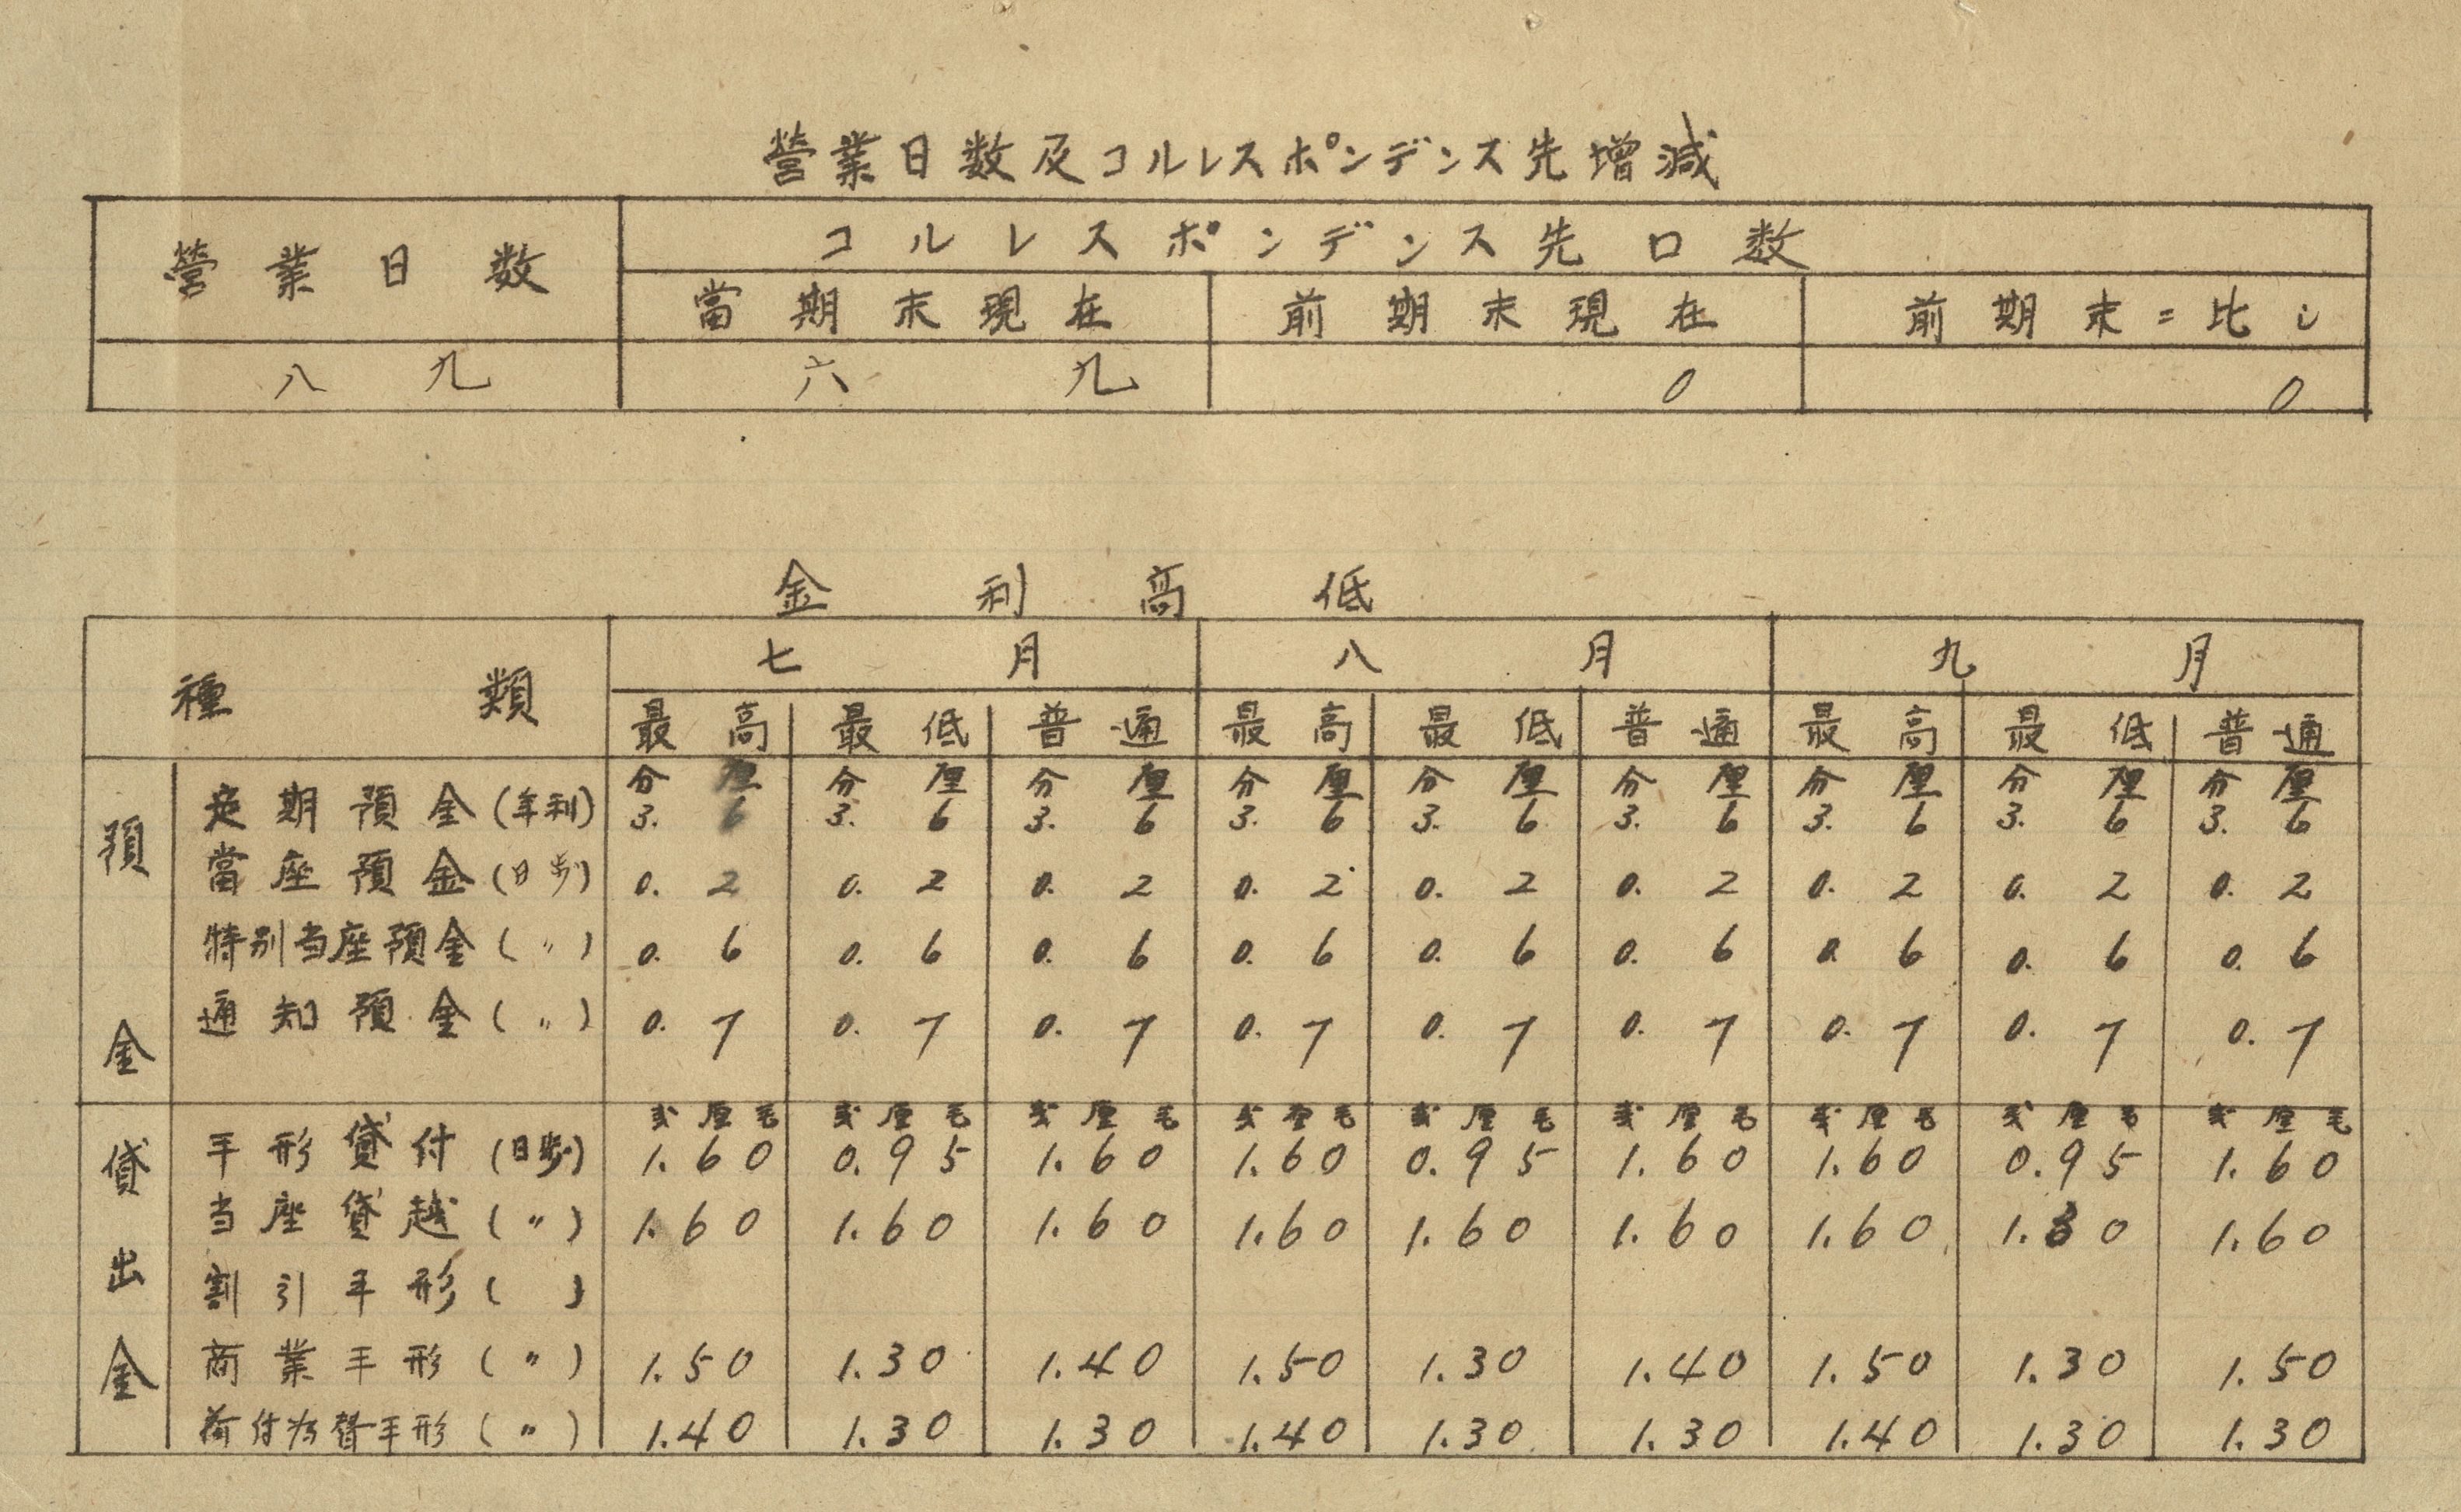 營業日数及コルレスポンデンス先增減
營業日数 コルレスポンデンス先口数
當期末現在 前期末現在 前期末ニ比シ
八九 六九 0 0
金利高低
種類 七月 八月 九月
最高 最低 普通 最高 最低 普通 最高 最低 普通
預金
分厘 分厘 分厘 分厘 分厘 分厘 分厘 分厘 分厘
定期預金(年利) 3.6 3.6 3.6 3.6 3.6 3.6 3.6 3.6 3.6
當座預金(日歩) 0.2 0.2 0.2 0.2 0.2 0.2 0.2 0.2 0.2
特別当座預金(〃) 0.6 0.6 0.6 0.6 0.6 0.6 0.6 0.6 0.6
通知預金(〃) 0.7 0.7 0.7 0.7 0.7 0.7 0.7 0.7 0.7
貸出金
厘毛 厘毛 厘毛 厘毛 厘毛 厘毛 厘毛 厘毛 厘毛
手形貸付(日歩) 1.60 0.95 1.60 1.60 0.95 1.60 1.60 0.95 1.60
当座貸越(〃) 1.60 1.60 1.60 1.60 1.60 1.60 1.60 1.30 1.60
割引手形( )
商業手形(〃) 1.50 1.30 1.40 1.50 1.30 1.40 1.50 1.30 1.50
荷付為替手形(〃) 1.40 1.30 1.30 1.40 1.30 1.30 1.40 1.30 1.30